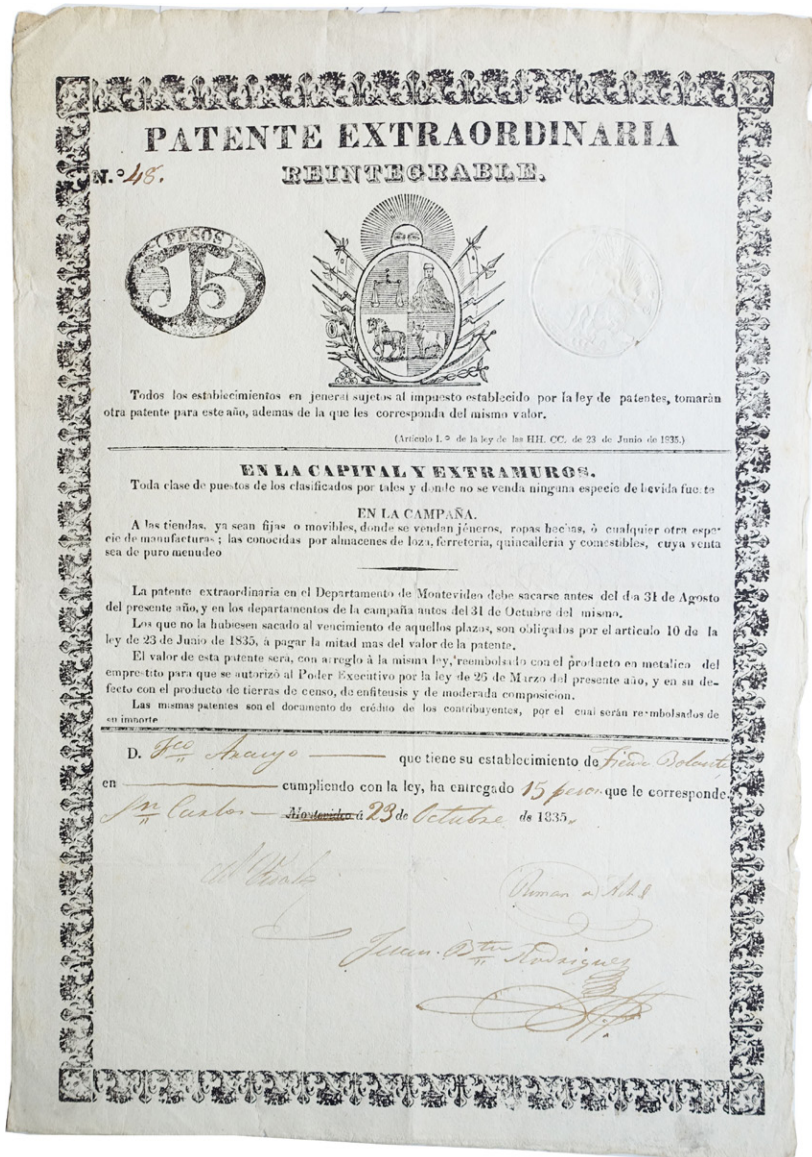 PATENTE EXTRAORDINARIA
N.º 48. REINTEGRABLE.
(PESOS)
15
Todos los establecimientos en jeneral sujetos al impuesto establecido por la ley de patentes, tomarán
otra patente para este año, ademas de la que les corresponda del mismo valor.
(Artículo 1.º de la ley de las HH. CC. de 23 de Junio de 1835.)
EN LA CAPITAL Y EXTRAMUROS.
Toda clase de puestos de los clasificados por tales y donde no se venda ninguna especie de bevida fuerte
EN LA CAMPAÑA.
A las tiendas, ya sean fijas o movibles, donde se vendan jéneros, ropas hechas, ò cualquier otra espe-
cie de manufacturas; las conocidas por almacenes de loza, ferreteria, quincalleria y comestibles, cuya venta
sea de puro menudeo
La patente extraordinaria en el Departamento de Montevideo debe sacarse antes del dia 31 de Agosto
del presente año, y en los departamentos de la campaña antes del 31 de Octubre del mismo.
Los que no la hubiesen sacado al vencimiento de aquellos plazos, son obligados por el articulo 10 de la
ley de 23 de Junio de 1835, à pagar la mitad mas del valor de la patente.
El valor de esta patente será, con arreglo à la misma ley, reembolsado con el producto en metalico del
emprestito para que se autorizó al Poder Executivo por la ley de 26 de Marzo del presente año, y en su de-
fecto con el producto de tierras de censo, de enfiteusis y de moderada composicion.
Las mismas patentes son el documento de crédito de los contribuyentes, por el cual serán reembolsados de
su importe
D. Fco Araujo que tiene su establecimiento de
en cumpliendo con la ley, ha entregado 15 pesos que le corresponde.
Sn Carlos Montevideo á 23 de Octubre de 1835.
Juan Bta Rodriguez